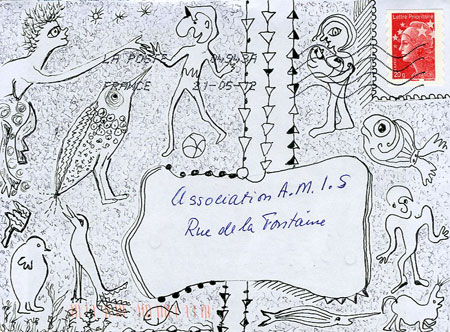 Lettre Prioritaire
20g
LA POSTE 94943A
FRANCE 21-05-12
Association A.M.I.S
Rue de la Fontaine